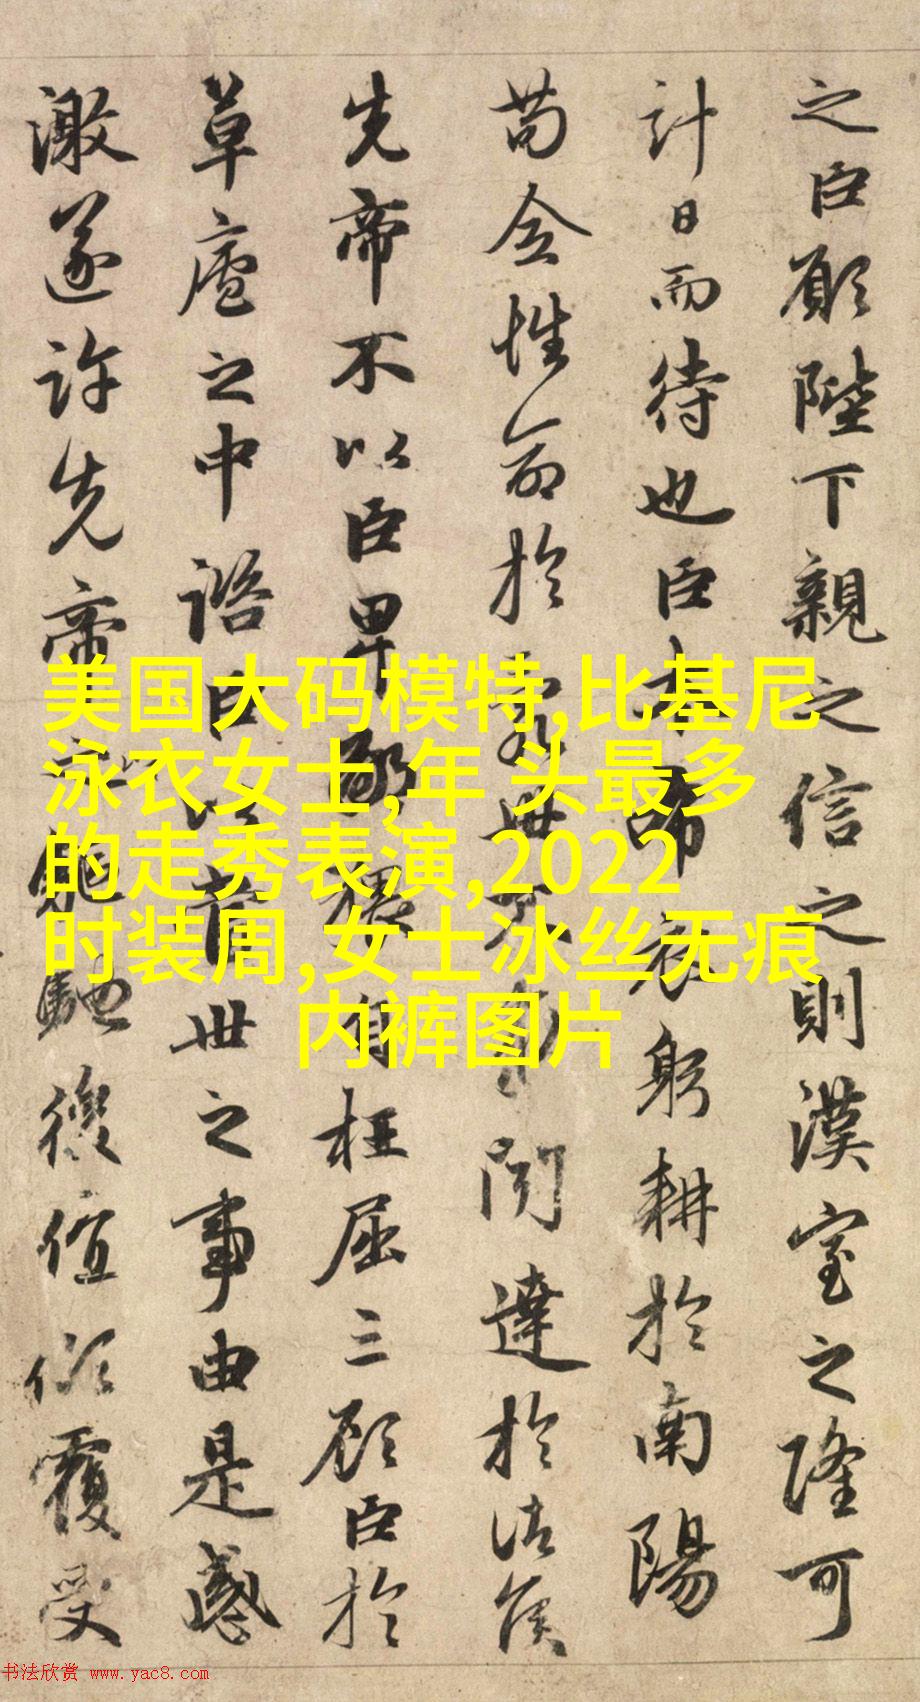 之臣願陛下親之信之則漢室之隆可
計日而待也臣本布衣躬耕於南陽
苟全性命於亂世不求聞達於諸侯
先帝不以臣卑鄙猥自枉屈三顧臣於
草廬之中諮臣以當世之事由是感
激遂許先帝以驅馳後值傾覆受
美国大码模特,比基尼
泳衣女士,年 头最多
的走秀表演,2022
时装周,女士冰丝无痕
内裤图片
书法欣赏 www.yac8.com